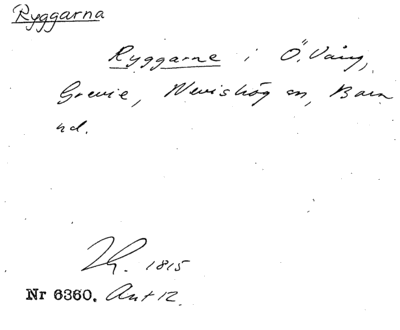 Ryggarna
Ryggarne i Ö. Vång,
Grevie, Nevishög sn, Bara
hd.
1815
Nr 6360. Ant 12.